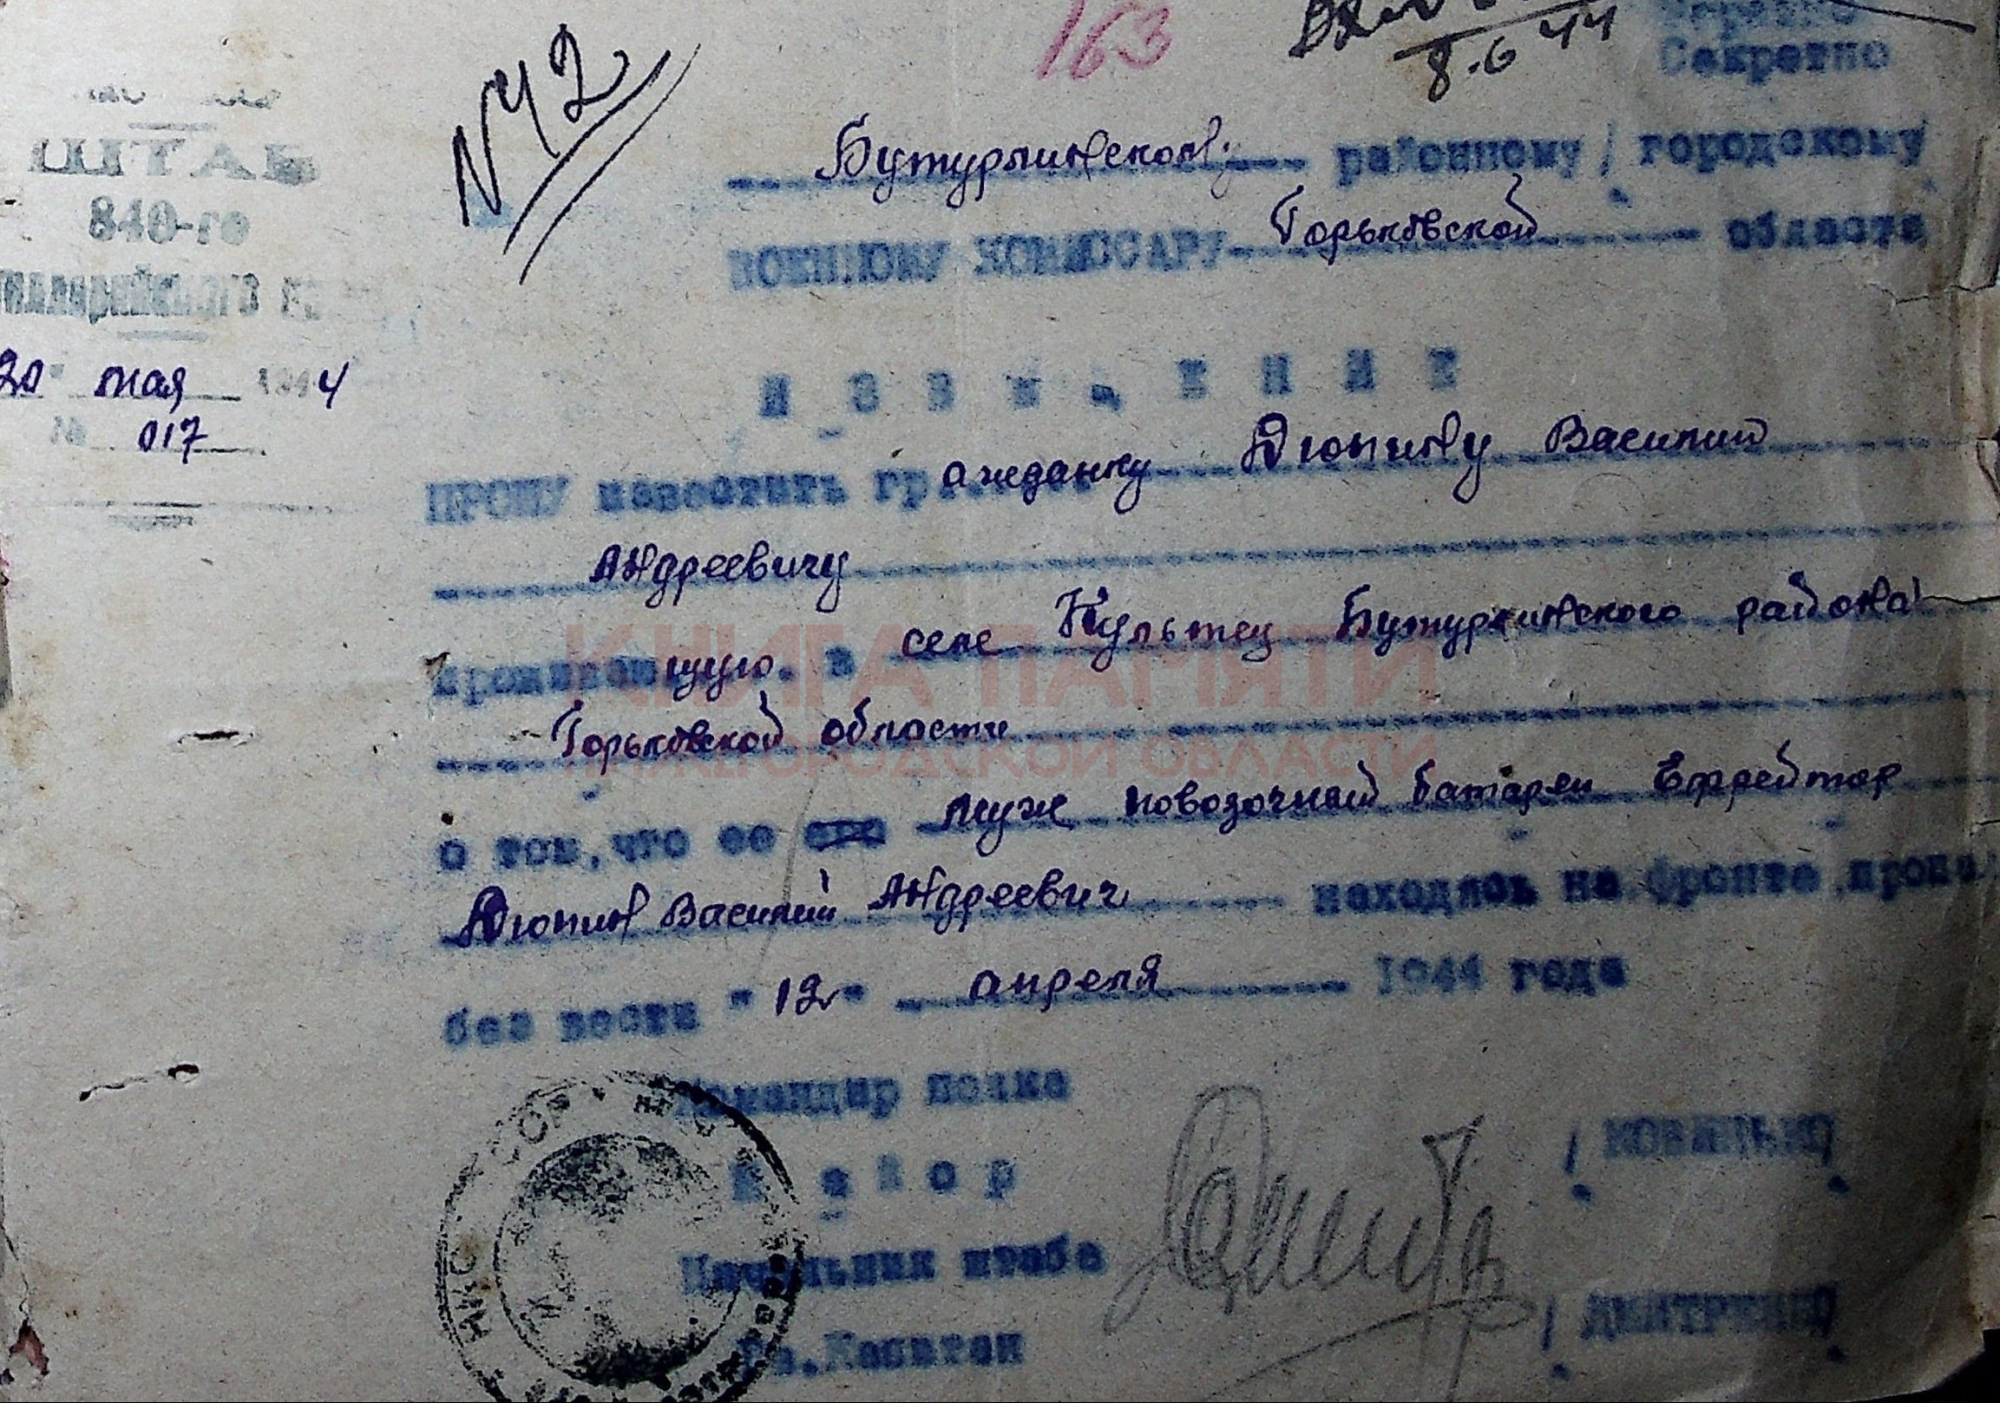 N42
163
8.6 44
Секретно
ШТАБ
840-го
20 мая 1944
№ 017
Бутурлинскому районному / городскому
ВОЕННОМУ КОМИССАРУ Горьковской области
ИЗВЕЩЕНИЕ
ПРОШУ известить гражданку Дюпину Василий
Андреевичу
проживающую в селе Культец Бутурлинского района
Горьковской области
о том, что ее его муж повозочный батареи Ефрейтор
Дюпин Василий Андреевич находясь на фронте
без вести "12" апреля 1944 года
Командир полка
Майор
Начальник штаба
Гв.Капитан / ДМИТРЕНКО /
КНИГА ПАМЯТИ
НИЖЕГОРОДСКОЙ ОБЛАСТИ